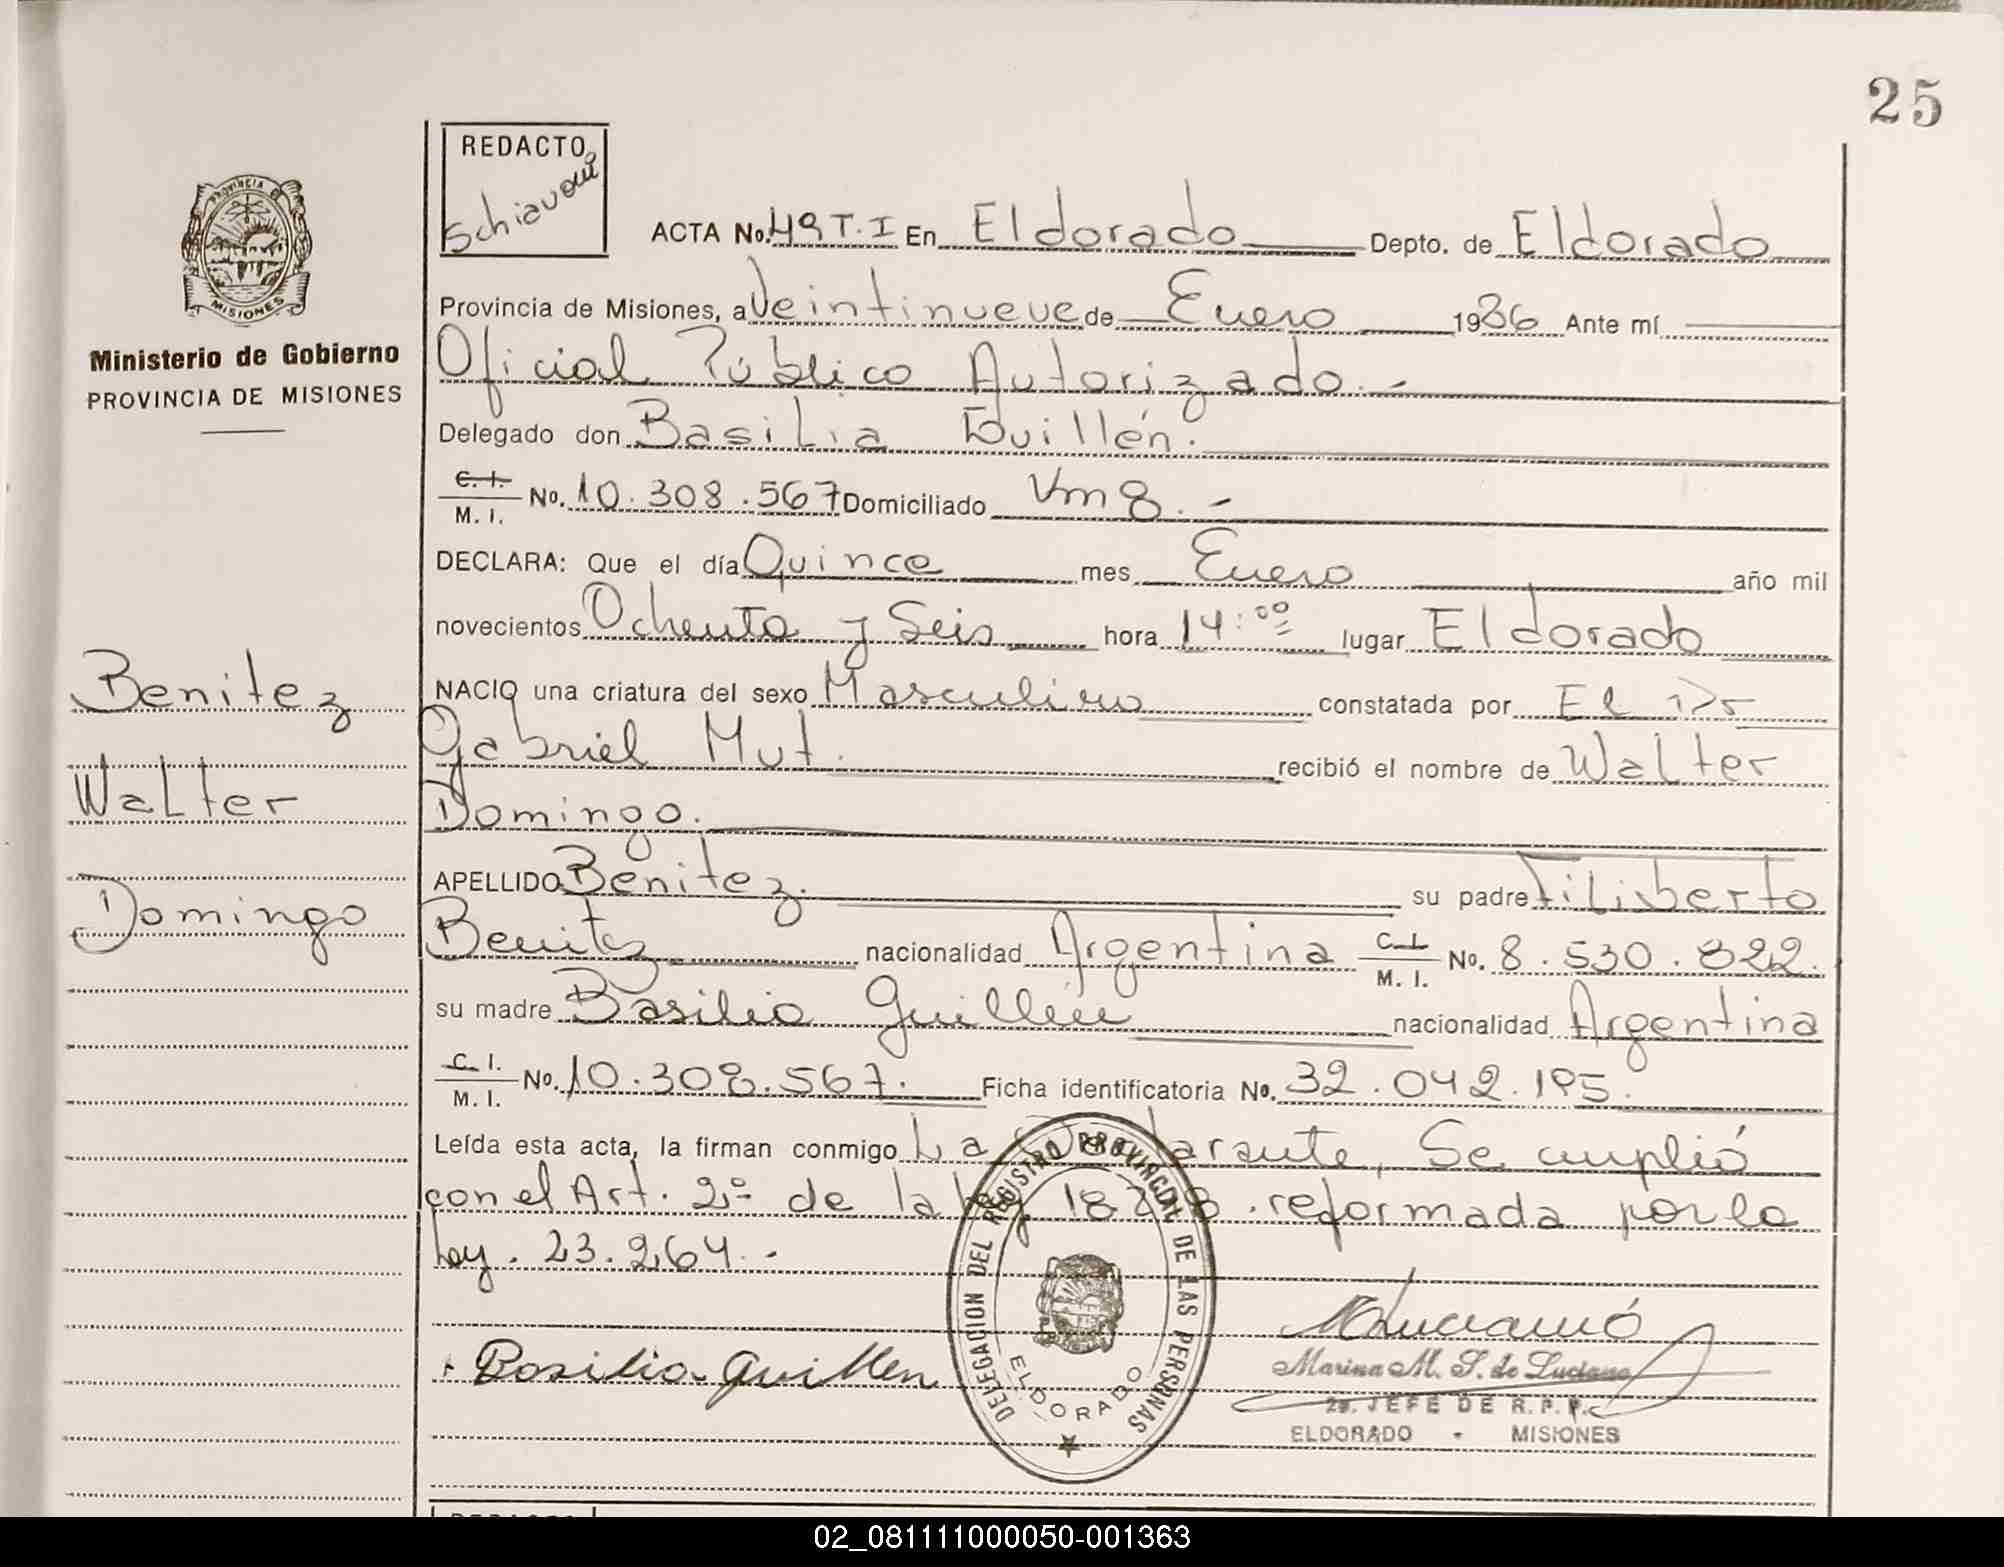 25
REDACTO
Schiavoni
PROVINCIA DE
MISIONES
Ministerio de Gobierno
PROVINCIA DE MISIONES
ACTA No. 49 T.I En Eldorado Depto. de Eldorado
Provincia de Misiones, a Veintinueve de Enero 1986 Ante mí
Oficial Público Autorizado.-
Delegado don Basilia Guillén.
C. I. M. I. No. 10.308.567 Domiciliado Km 8.-
DECLARA: Que el día Quince mes Enero año mil
novecientos Ochenta y Seis hora 14:00 lugar Eldorado
NACIO una criatura del sexo Masculino constatada por El Dr
Gabriel Mut. recibió el nombre de Walter
Domingo.
APELLIDO Benitez. su padre Filiberto
Benitez nacionalidad Argentina C. I. M. I. No. 8.530.822.
su madre Basilia Guillén nacionalidad Argentina
C. I. M. I. No. 10.308.567. Ficha identificatoria No. 32.042.195.
Leída esta acta, la firman conmigo La Declarante, Se cumplió
con el Art. 2º de la Ley 18.248. reformada por la
Ley. 23.264.-
Benitez
Walter
Domingo
Basilia Guillen
DELEGACION DEL REGISTRO PROVINCIAL DE LAS PERSONAS
ELDORADO
Marina M. S. de Luciano
2º. JEFE DE R. P. P.
ELDORADO - MISIONES
REDACTO
02_081111000050-001363